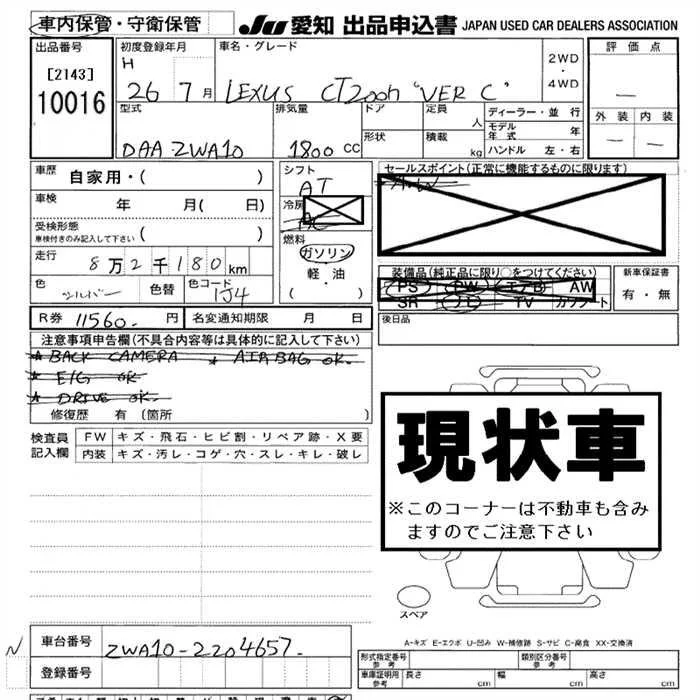 車内保管・守衛保管 JU 愛知 出品申込書 JAPAN USED CAR DEALERS ASSOCIATION
出品番号 初度登録年月 車名・グレード 2WD・4WD 評価点
[2143] H 26 7月 LEXUS CT200h "VER C" —
10016 型式 排気量 ドア 定員 人 ディーラー・並行 外装 内装
形状 積載 kg モデル年式 年 — —
DAA ZWA10 1800 CC ハンドル 左・右
車歴 自家用・( ) シフト AT セールスポイント(正常に機能するものに限ります)
車検 年 月( 日) 冷房 AC
受検形態 車検付きのみ記入して下さい ( ) 燃料
走行 8万2千180km ガソリン 装備品(純正品に限り○をつけてください) 新車保証書
色 シルバー 色替 色コード 1J4 軽・油 ( ) PS PW エアB AW 有・無
SR ナビ TV カワシート
R券 11560- 円 名変通知期限 月 日 後日品
注意事項申告欄(不具合内容等は具体的に記入して下さい)
* BACK CAMERA * AIRBAG OK.
* E/G OK
* DRIVE OK.
修復歴 有(箇所 )
現状車
検査員記入欄 FW キズ・飛石・ヒビ割・リペア跡・X要
内装 キズ・汚レ・コゲ・穴・スレ・キレ・破レ
※このコーナーは不動車も含み
ますのでご注意下さい
スペア
A-キズ E-エクボ U-凹み W-補修跡 S-サビ C-腐食 XX-交換済
N 車台番号 ZWA10-2204657-
登録番号
形式指定番号 参考 類別区分番号 参考
車庫証明用 参考 長さ cm 幅 cm 高さ cm